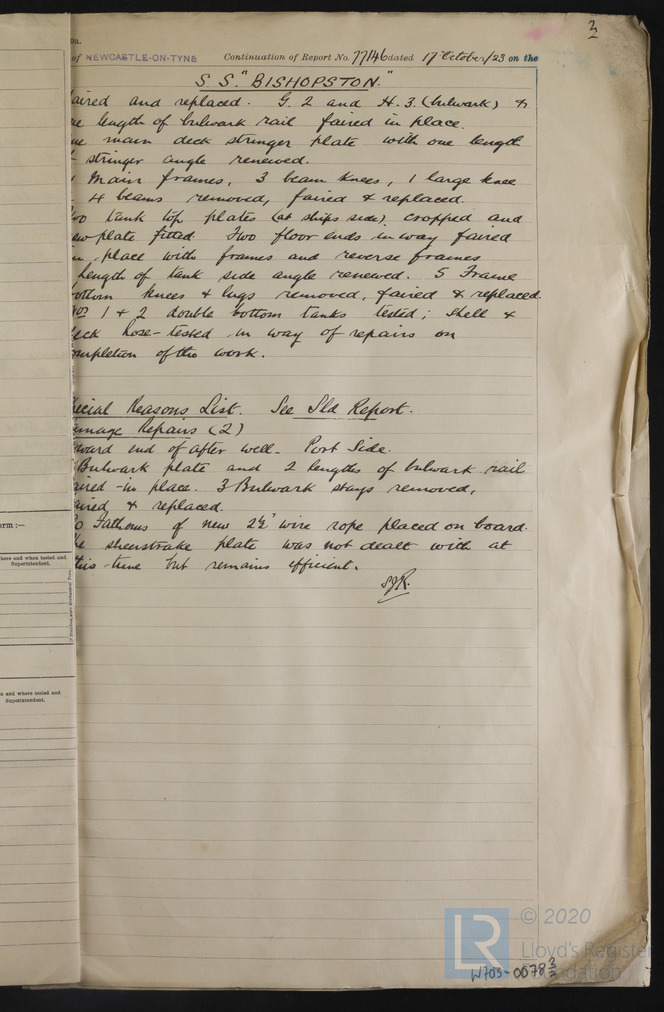 3
of NEWCASTLE-ON-TYNE Continuation of Report No. 77146 dated 17 October/23 on the
S.S. "BISHOPSTON."
aired and replaced. G. 2 and H. 3. (bulwark) &
length of bulwark rail faired in place.
main deck stringer plate with one length
stringer angle renewed.
Main frames, 3 beam knees, 1 large knee
4 beams removed, faired & replaced.
wo tank top plates (at ships side) cropped and
ew plate fitted. Two floor ends in way faired
in place with frames and reverse frames
length of tank side angle renewed. 5 Frame
ottom knees & lugs removed, faired & replaced.
Nos 1 & 2 double bottom tanks tested; Shell &
eck hose-tested in way of repairs on
ompletion of the work.
ecial Reasons List. See Sld Report.
amage Repairs (2)
orward end of after well. Port Side.
Bulwark plate and 2 lengths of bulwark rail
aired in place. 3 Bulwark stays removed,
aired & replaced.
Fathoms of new 2½" wire rope placed on board.
he sheerstrake plate was not dealt with at
this time but remains efficient.
orm :—
here and when tested and
Superintendent.
s and where tested and
Superintendent.
LR
© 2020
Lloyd's Register
Foundation
W703-0078 2/2